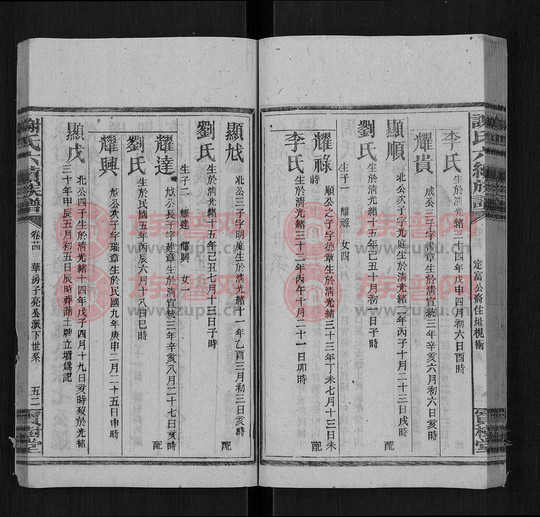 謝氏六續族譜
定富公裔住壋視衝
李氏
生於清光緒三十四年戊申四月初六日酉時
耀貴
成公三子字 章生於清宣統三年辛亥六月初六日
顯順
北公次子字光庭生於清光緒二年丙子十月二十三日戌時 配
劉氏
生於清光緒十五年己丑十月初六日亥時
生子一 耀祿 女四
耀祿
順公之子字德章生於清光緒三十三年丁未七月十三日未時 配
李氏
生於清光緒三十二年丙午十月二十一日卯時
顯
北公三子字明庭生於清光緒十一年乙酉三月初三日亥時 配
劉氏
生於清光緒十五年己丑七月十三日子時
生子二 耀達 耀興 女一
耀達
公長子字達章生於清宣統三年辛亥八月二十七日亥時 配
劉氏
生於民國五年丙辰六月十八日巳時
耀興
公次子字瑞章生於民國九年庚申二月二十五日申時
顯戊
北公四子生於清光緒十四年戊子四月十九日亥時歿於光緒
三十年甲辰五月初五日辰 葬 土碑立壋為記
謝氏六續族譜
卷廿四
華房子亮公派下世系
五二
寶樹堂
族譜网
www.zupu.cn